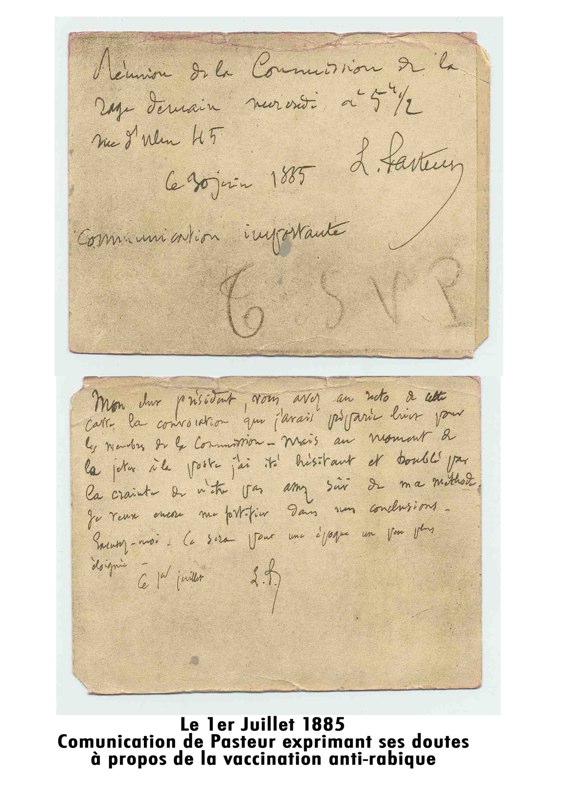 Réunion de la Commission de la
rage demain mercredi à 5 h 1/2
rue d'Ulm 45
L. Pasteur
Ce 30 juin 1885
Communication importante
T S V P
Mon cher président, vous avez au recto de cette
carte la convocation que j'avais préparée hier pour
les membres de la Commission - Mais au moment de
la jeter à la poste j'ai été hésitant et troublé par
la crainte de n'être pas assez sûr de ma méthode.
Je veux encore me fortifier dans mes conclusions -
Excusez-moi. Ce sera pour une époque un peu plus
éloignée -
Ce 1er juillet
L. P.
Le 1er Juillet 1885
Comunication de Pasteur exprimant ses doutes
à propos de la vaccination anti-rabique